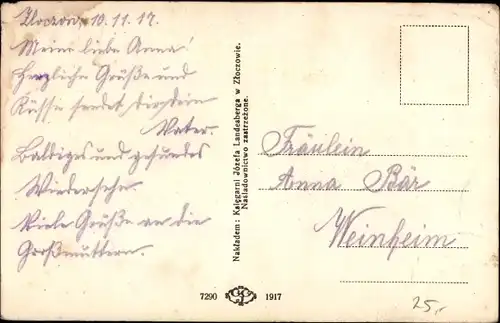 Zloczow, 10.11.17.
Meine liebe Anna!
Herzliche Grüße und
Küsse sendet dir dein
Vater.
Baldiges und gesundes
Wiedersehn
Viele Grüße an die
Großmuttern.
Nakładem: Księgarni Józefa Landesberga w Złoczowie.
Naśladownictwo zastrzeżone.
Fräulein
Anna Bär
Weinheim
7290 1917
25,-